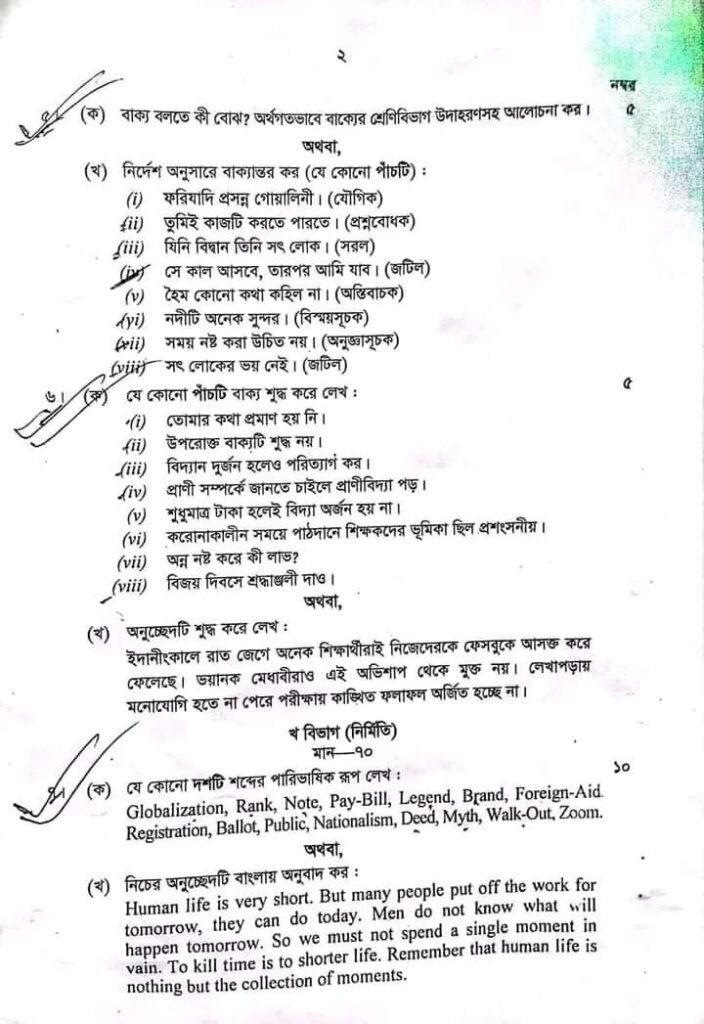 ২
নম্বর
৫। (ক) বাক্য বলতে কী বোঝ? অর্থগতভাবে বাক্যের শ্রেণিবিভাগ উদাহরণসহ আলোচনা কর। ৫
অথবা,
(খ) নির্দেশ অনুসারে বাক্যান্তর কর (যে কোনো পাঁচটি) :
(i) ফরিয়াদি প্রসন্ন গোয়ালিনী। (যৌগিক)
(ii) তুমিই কাজটি করতে পারতে। (প্রশ্নবোধক)
(iii) যিনি বিদ্বান তিনি সৎ লোক। (সরল)
(iv) সে কাল আসবে, তারপর আমি যাব। (জটিল)
(v) হৈম কোনো কথা কহিল না। (অস্তিবাচক)
(vi) নদীটি অনেক সুন্দর। (বিস্ময়সূচক)
(vii) সময় নষ্ট করা উচিত নয়। (অনুজ্ঞাসূচক)
(viii) সৎ লোকের ভয় নেই। (জটিল)
৬। (ক) যে কোনো পাঁচটি বাক্য শুদ্ধ করে লেখ : ৫
(i) তোমার কথা প্রমাণ হয় নি।
(ii) উপরোক্ত বাক্যটি শুদ্ধ নয়।
(iii) বিদ্যান দুর্জন হলেও পরিত্যাগ কর।
(iv) প্রাণী সম্পর্কে জানতে চাইলে প্রাণীবিদ্যা পড়।
(v) শুধুমাত্র টাকা হলেই বিদ্যা অর্জন হয় না।
(vi) করোনাকালীন সময়ে পাঠদানে শিক্ষকদের ভূমিকা ছিল প্রশংসনীয়।
(vii) অন্ন নষ্ট করে কী লাভ?
(viii) বিজয় দিবসে শ্রদ্ধাঞ্জলী দাও।
অথবা,
(খ) অনুচ্ছেদটি শুদ্ধ করে লেখ :
ইদানীংকালে রাত জেগে অনেক শিক্ষার্থীরাই নিজেদেরকে ফেসবুকে আসক্ত করে
ফেলেছে। ভয়ানক মেধাবীরাও এই অভিশাপ থেকে মুক্ত নয়। লেখাপড়ায়
মনোযোগি হতে না পেরে পরীক্ষায় কাঙ্খিত ফলাফল অর্জিত হচ্ছে না।
খ বিভাগ (নির্মিতি)
মান—১০
(ক) যে কোনো দশটি শব্দের পারিভাষিক রূপ লেখ : ১০
Globalization, Rank, Note, Pay-Bill, Legend, Brand, Foreign-Aid
Registration, Ballot, Public, Nationalism, Deed, Myth, Walk-Out, Zoom.
অথবা,
(খ) নিচের অনুচ্ছেদটি বাংলায় অনুবাদ কর :
Human life is very short. But many people put off the work for
tomorrow, they can do today. Men do not know what will
happen tomorrow. So we must not spend a single moment in
vain. To kill time is to shorter life. Remember that human life is
nothing but the collection of moments.